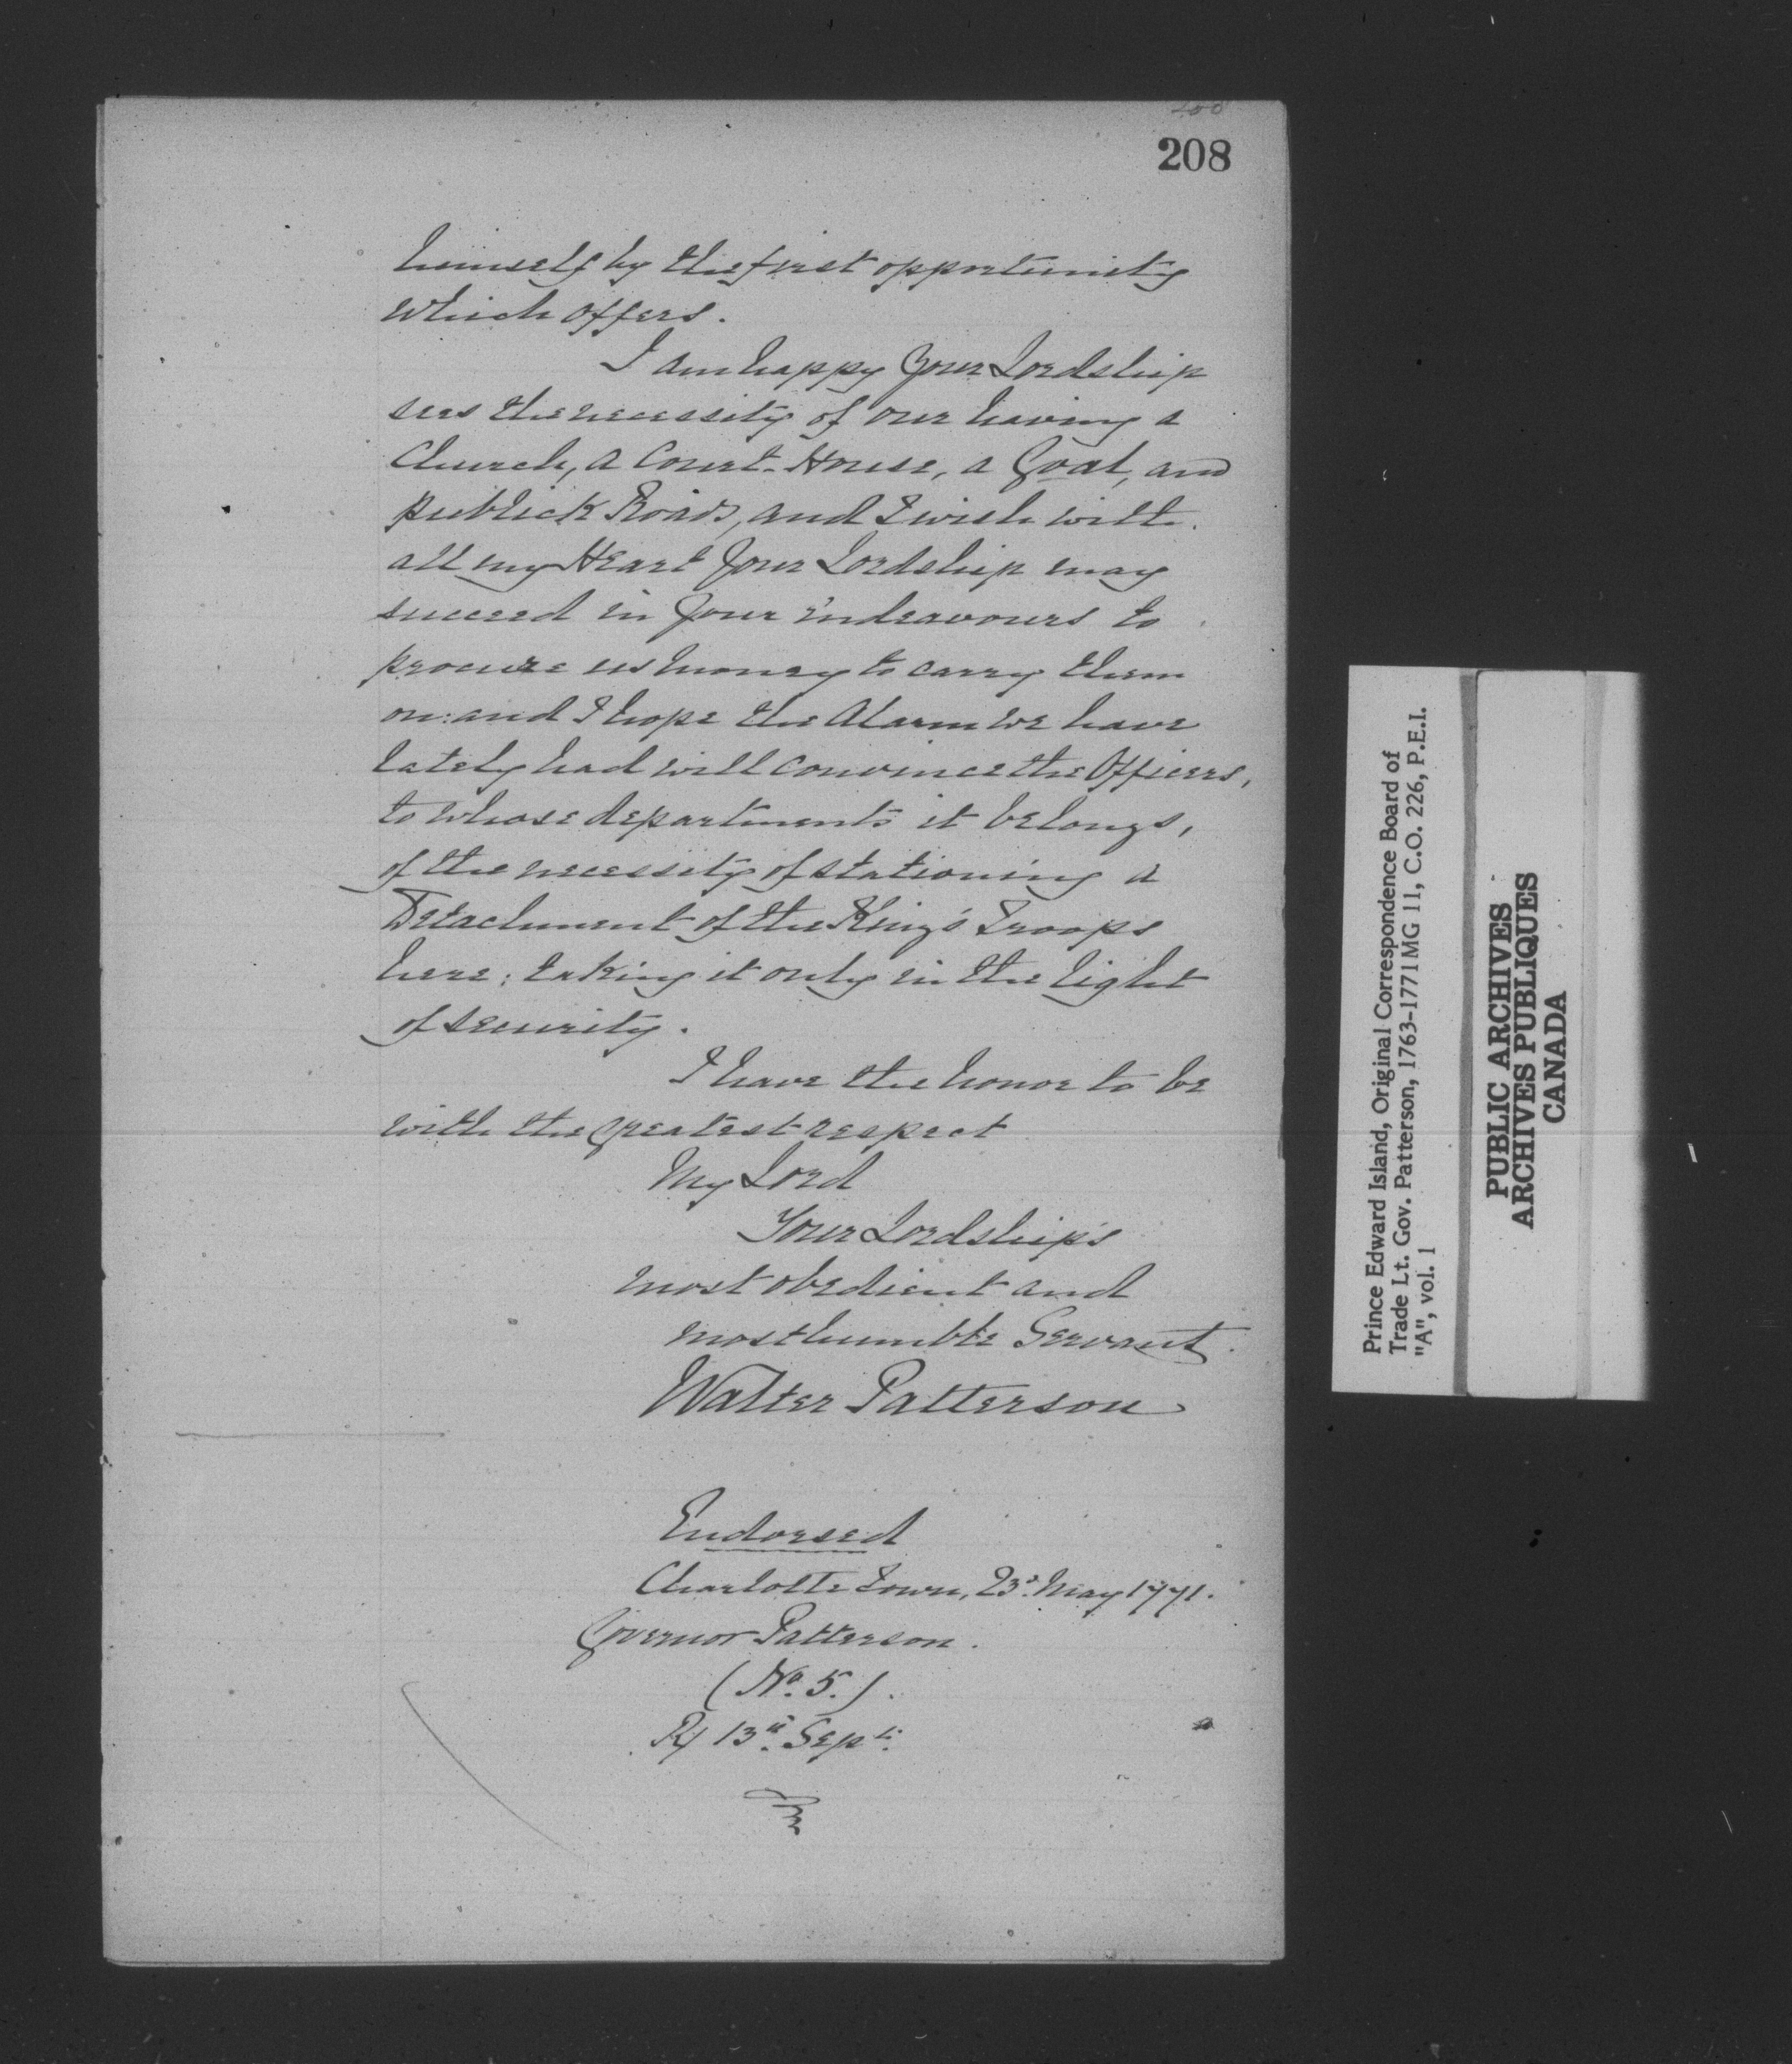 208
208
himself by the first opportunity
which offers.
I am happy Your Lordship
sees the necessity of our having a
Church, a Court-House, a Goal, and
publick Roads, and I wish with
all my Heart Your Lordship may
succeed in Your indeavours to
procure us money to carry them
on: and I hope the Alarm we have
lately had will convince the Officers,
to whose departments it belongs,
of the necessity of stationing a
Detachment of the King's Troops
here; taking it only in the light
of security.
I have the honor to be
with the greatest respect
My Lord
Your Lordship's
most obedient and
most humble Servant.
Walter Patterson
Endorsed
Charlotte Town, 23d. May 1771.
Governor Patterson.
(No. 5.)
R/ 13th. Sept.
Prince Edward Island, Original Correspondence Board of
Trade Lt. Gov. Patterson, 1763-1771 MG 11, C.O. 226, P.E.I.
"A", vol. 1
PUBLIC ARCHIVES
ARCHIVES PUBLIQUES
CANADA